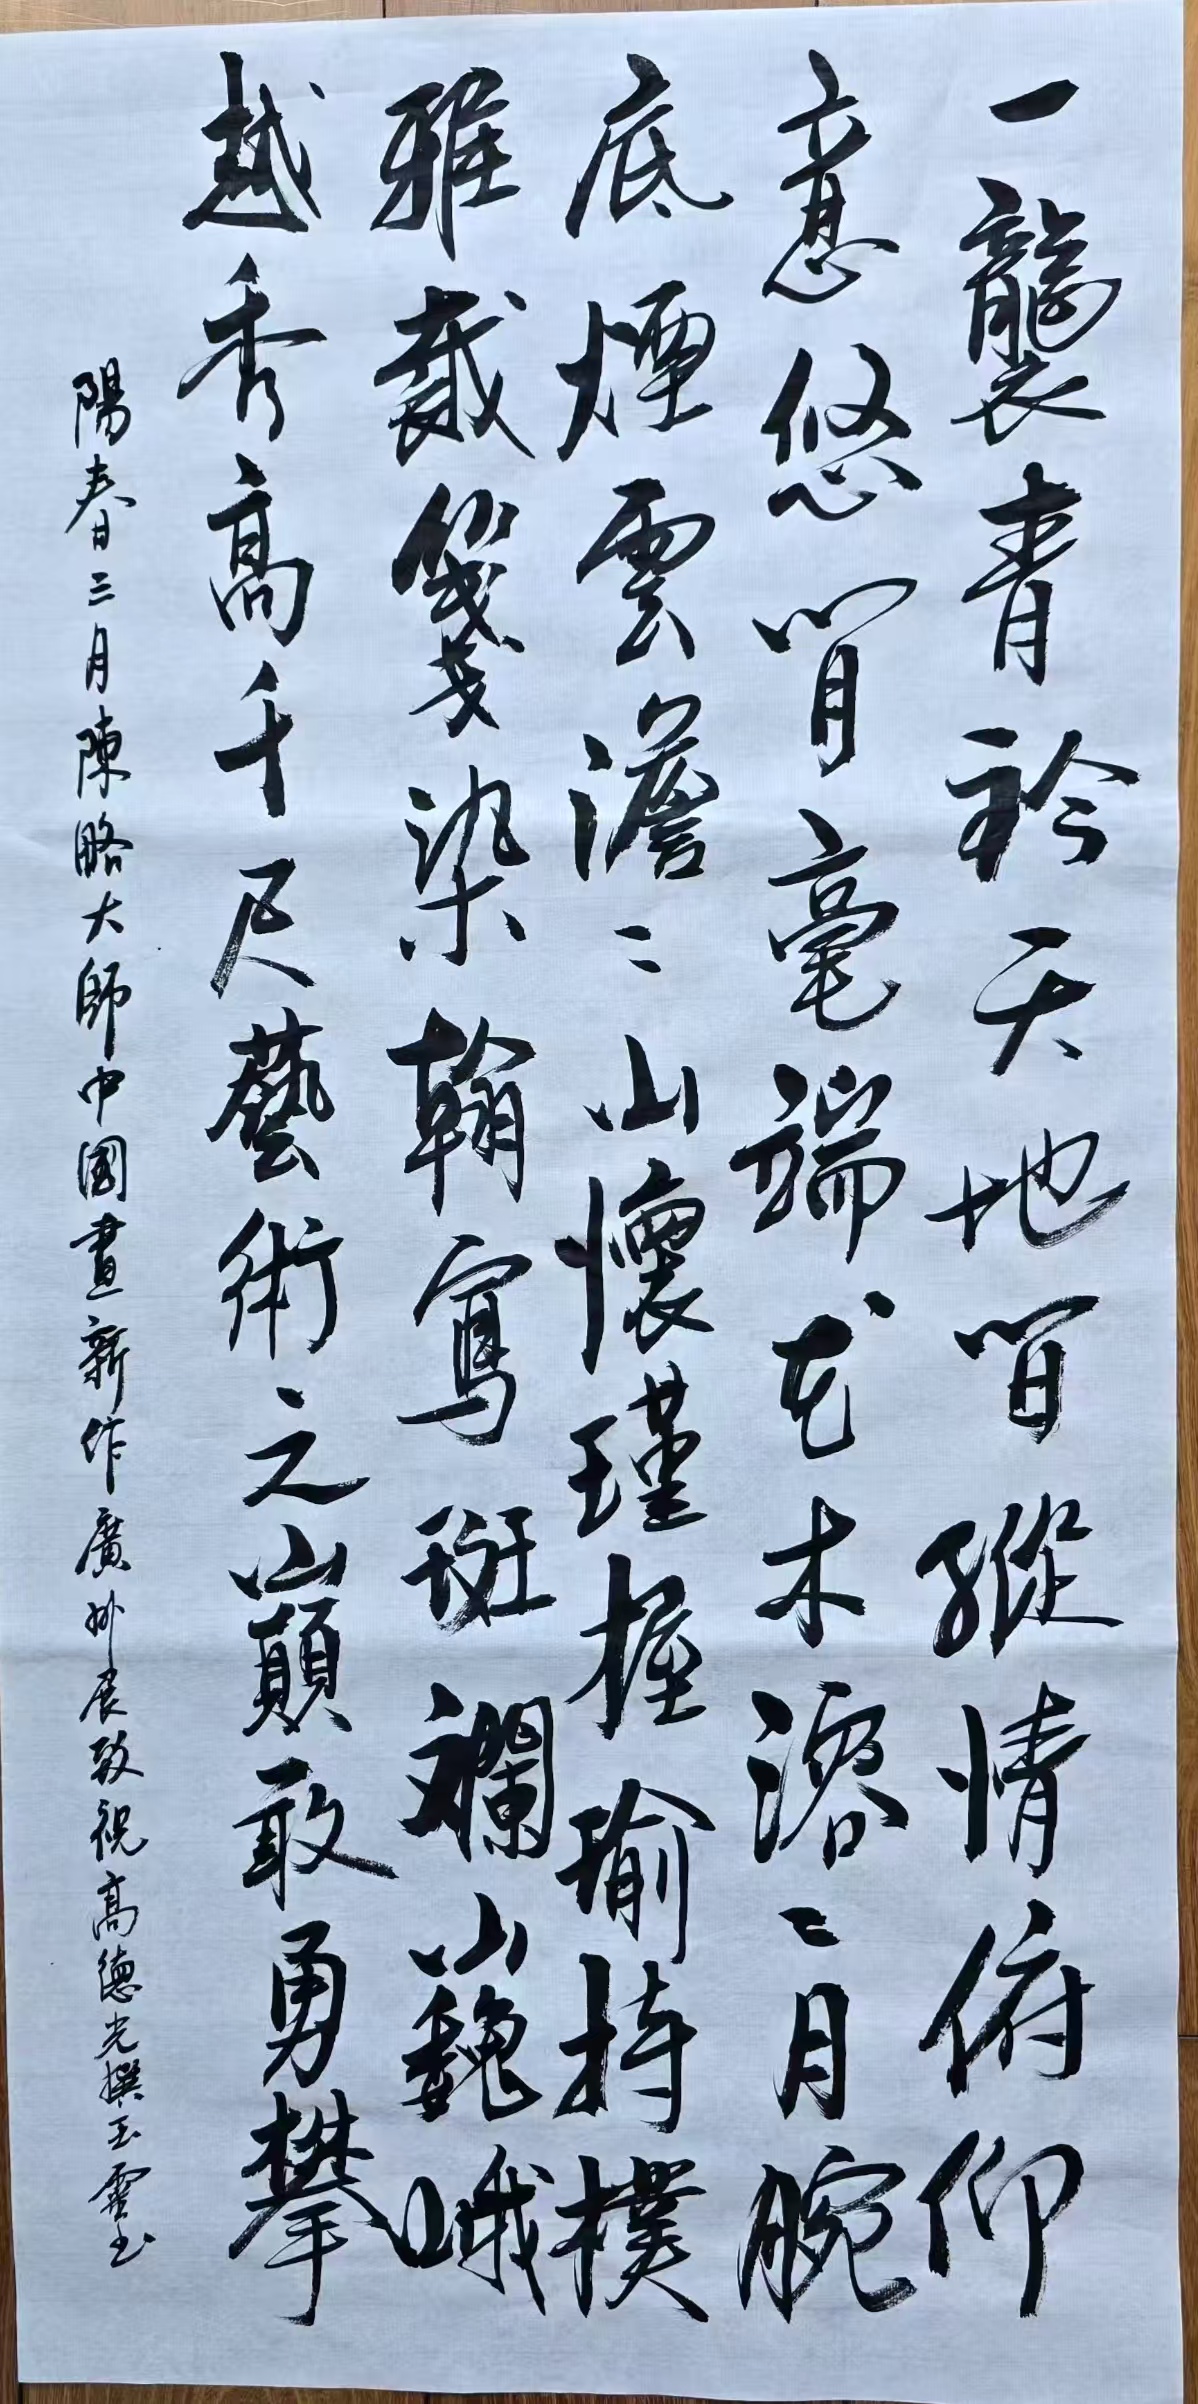 一襲青衿天地間縱情俯仰
意悠閒毫端花木溶〻月腕
底煙雲澹〻山懷瑾握瑜持樸
雅裁箋染翰寫斑斕巍峨
越秀高千尺藝術之巔敢勇攀
陽春三月陳略大師中國畫新作廣州展致祝高德光撰玉靈書